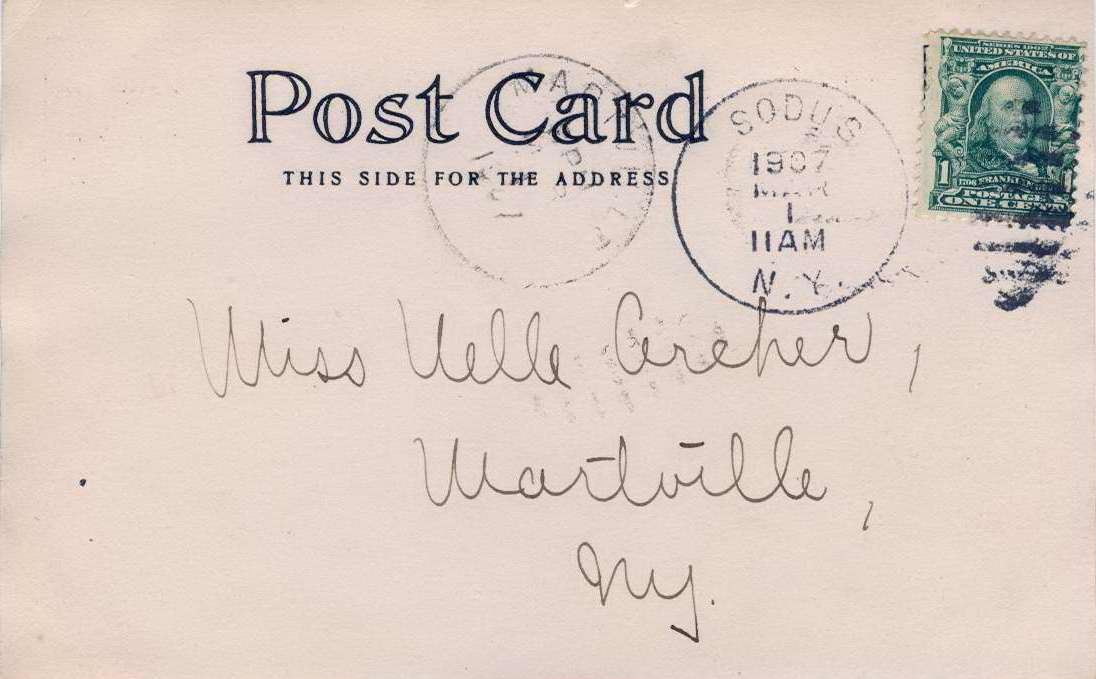 Post Card
THIS SIDE FOR THE ADDRESS
SODUS
1907
MAR
1
11AM
N.Y.
SERIES 1902
UNITED STATES OF
AMERICA
1
FRANKLIN
POSTAGE
ONE CENT
Miss Nelle Archer,
Martville,
NY.